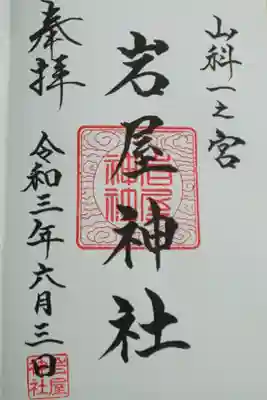 山科一之宮
岩屋神社
奉拝
令和三年六月三日
岩屋神社
岩屋神社